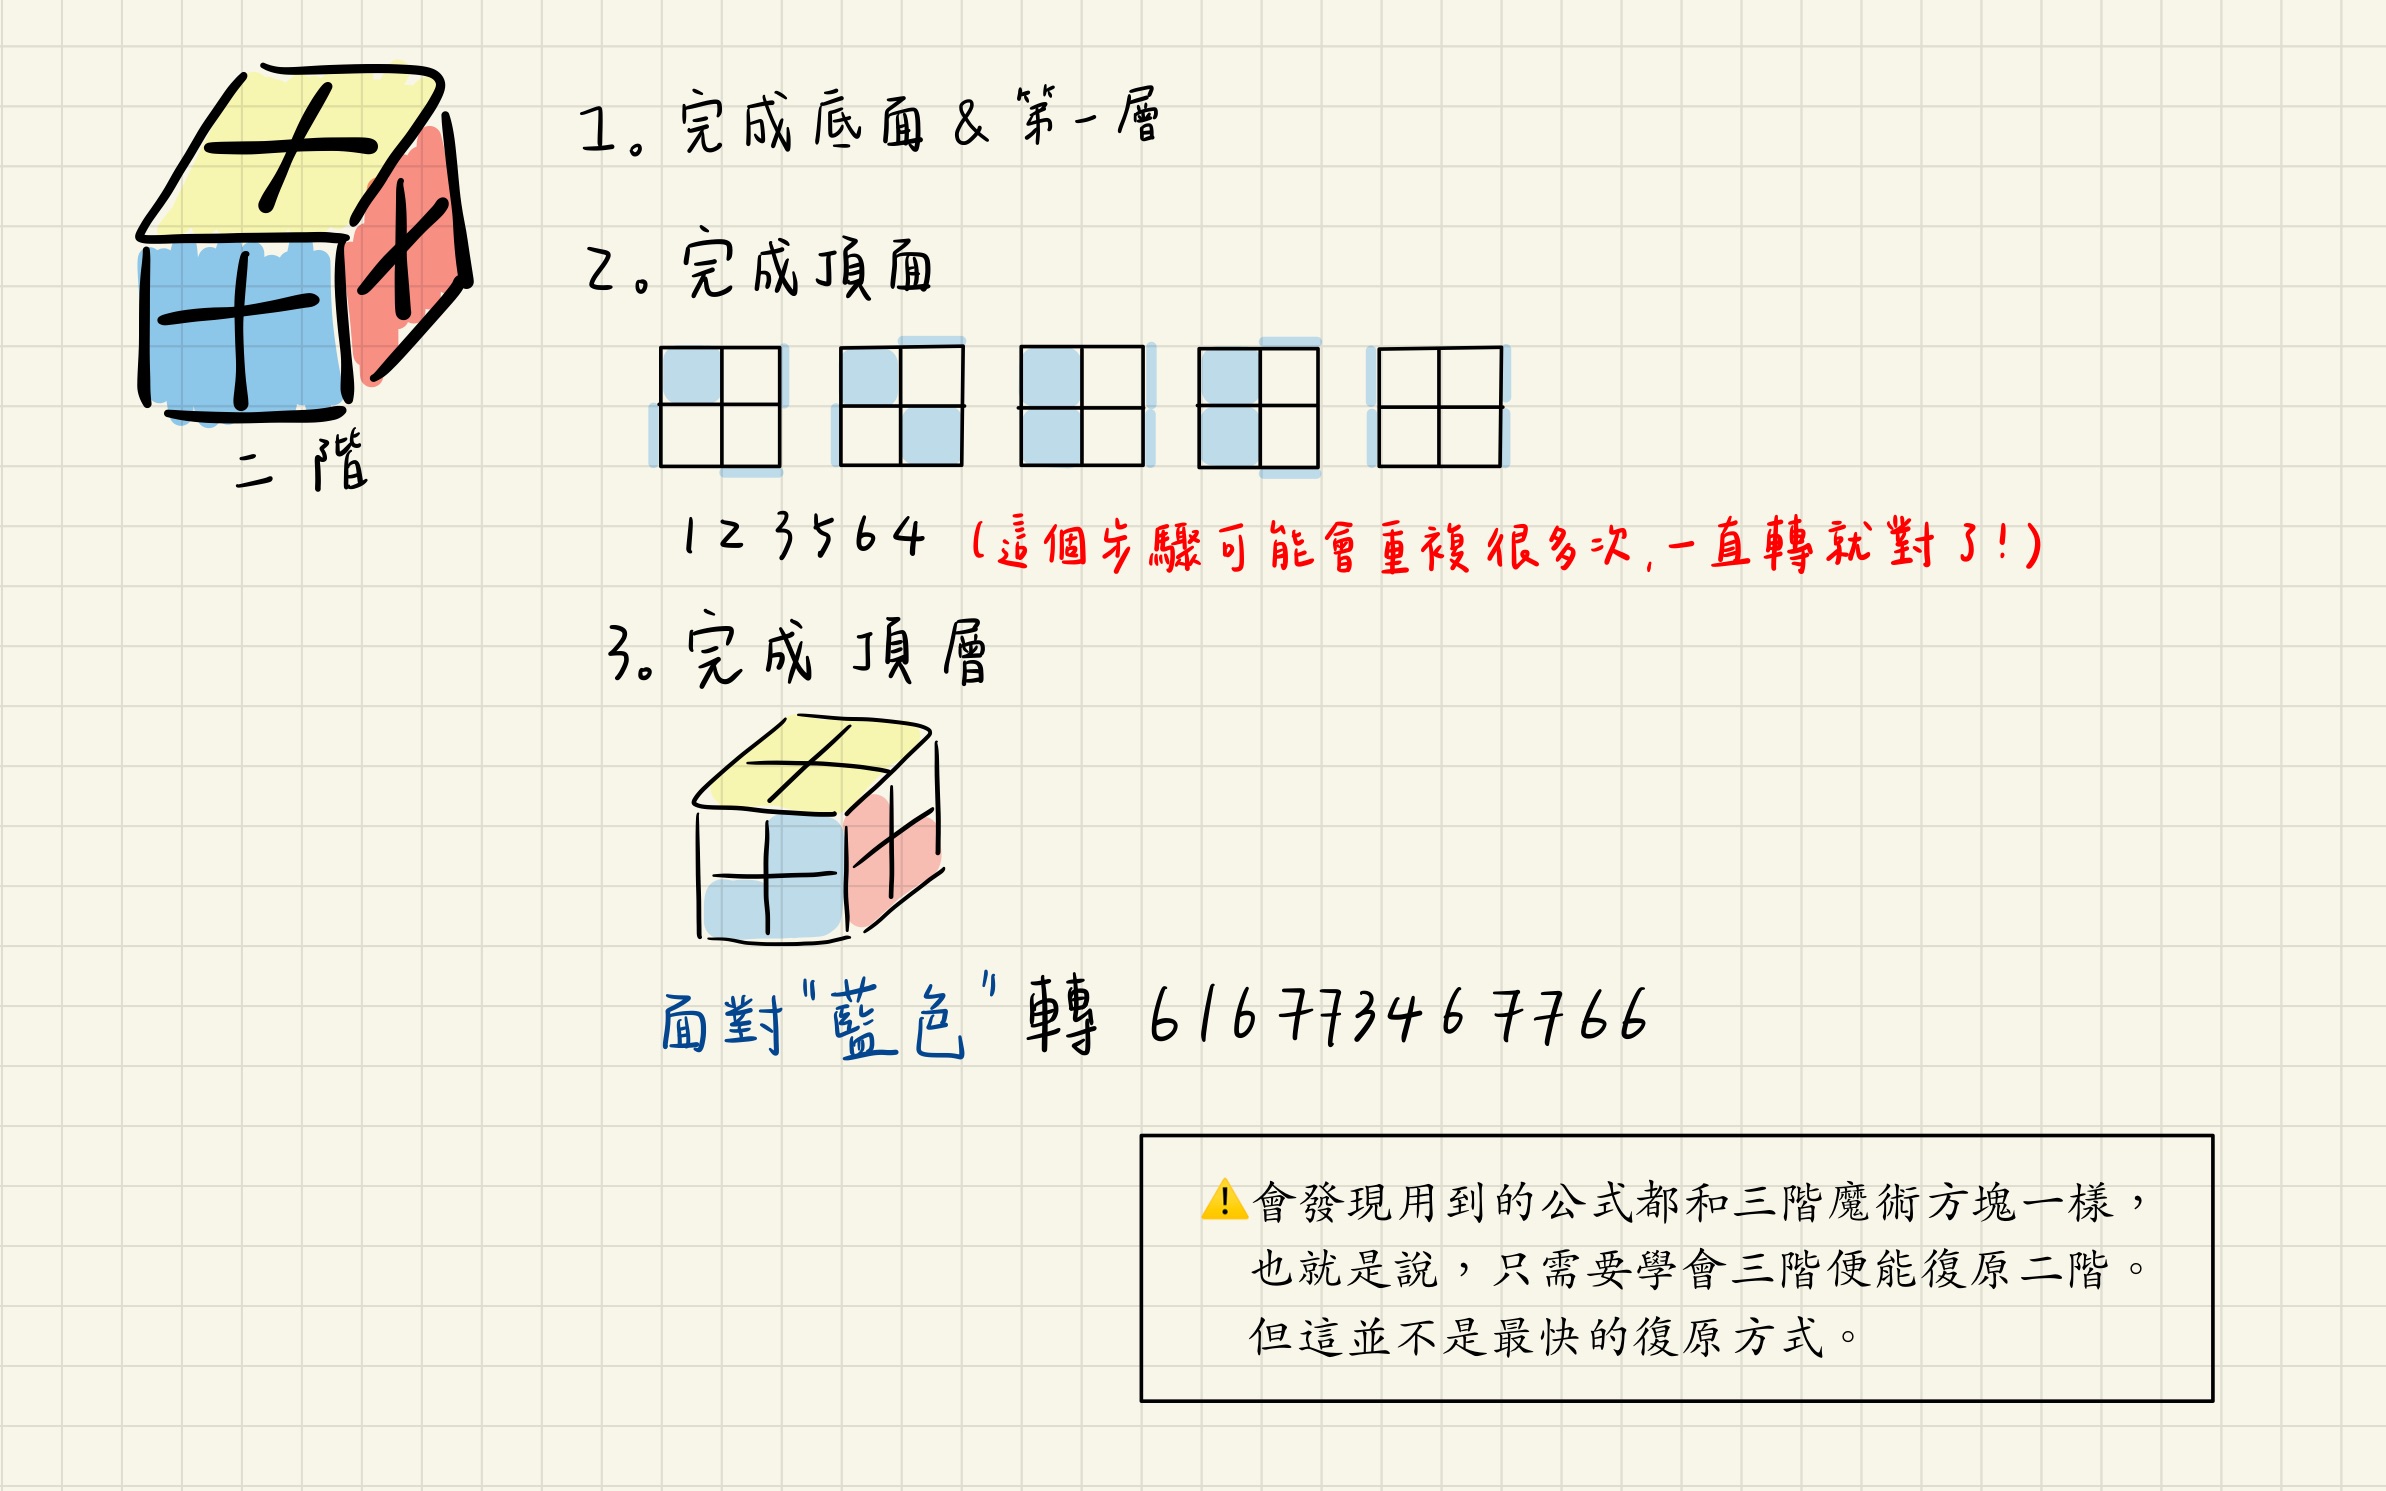 二階
1。完成底面&第一層
2。完成頂面
123564 (這個步驟可能會重複很多次,一直轉就對了!)
3。完成頂層
面對"藍色"轉 616773467766
⚠️會發現用到的公式都和三階魔術方塊一樣，
也就是說，只需要學會三階便能復原二階。
但這並不是最快的復原方式。